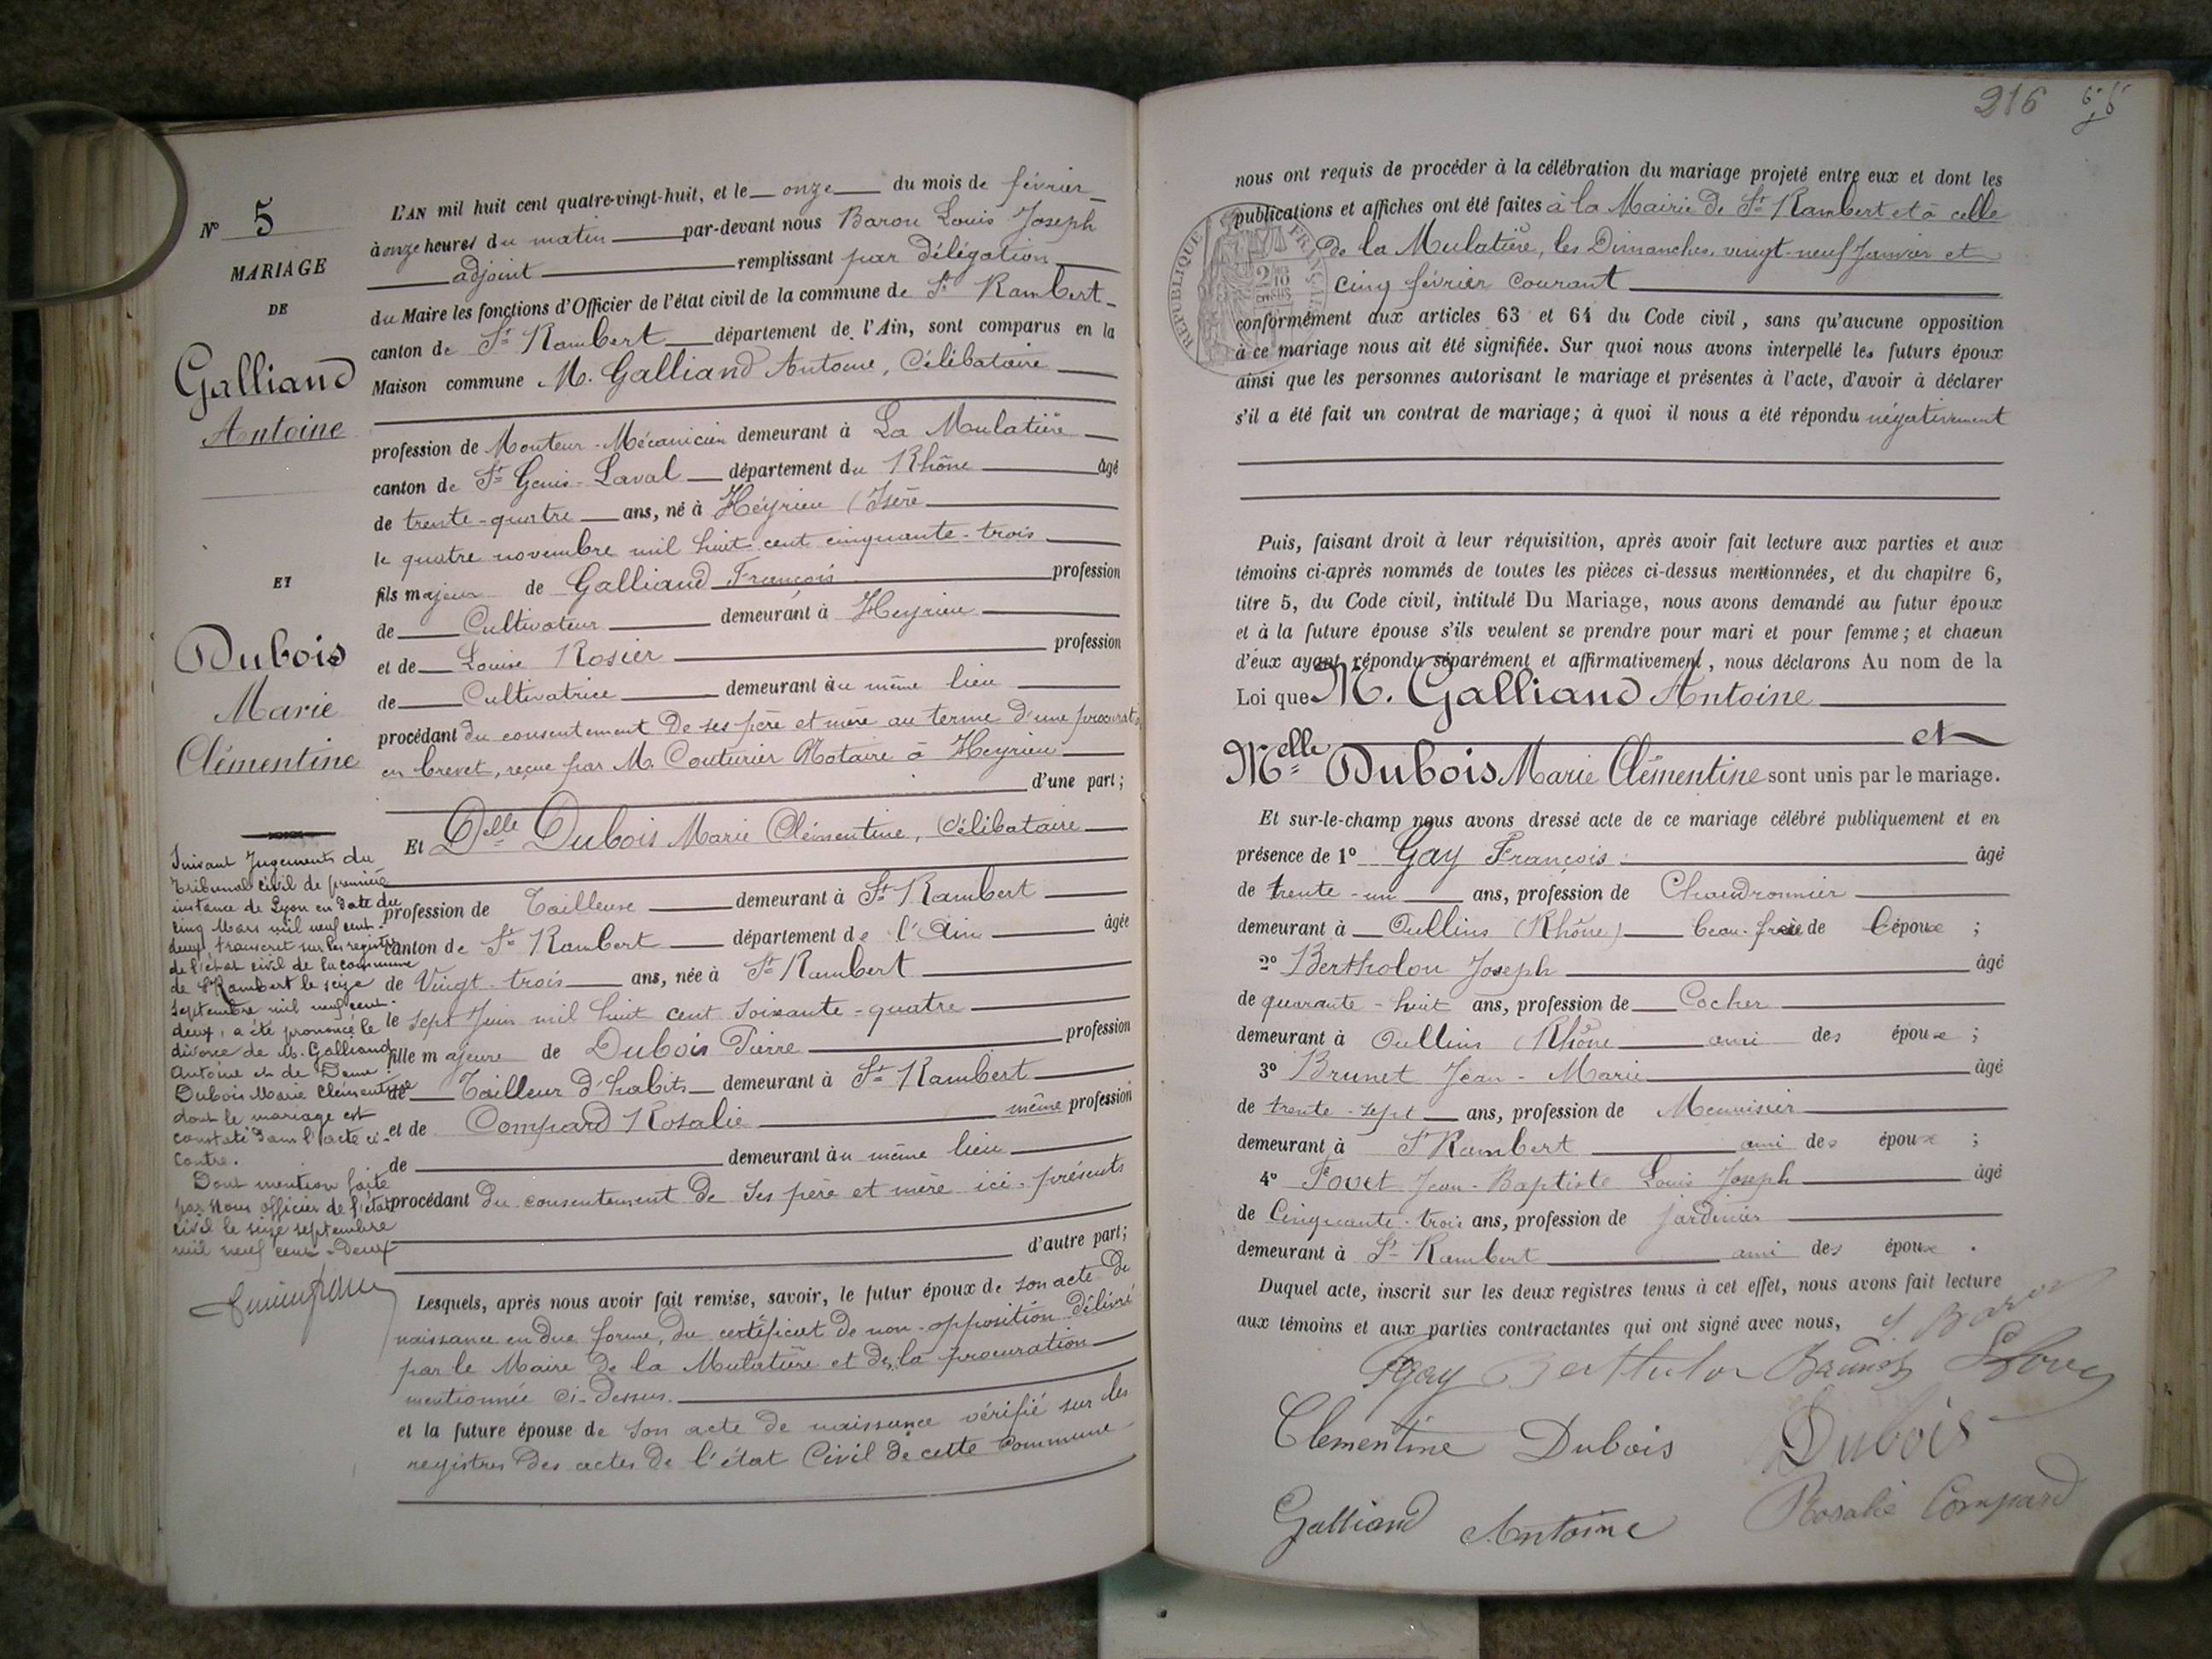 N° 5
MARIAGE
DE
Galliand
Antoine
ET
Dubois
Marie
Clémentine
Suivant Jugements du
Tribunal civil de première
instance de Lyon en date du
cinq Mars mil neuf cent-
deux, transcrit sur les registres
de l'état civil de la commune
de St Rambert le seize
septembre mil neuf cent-
deux, a été prononcé le
divorce de M. Galliand
Antoine et de Dame
Dubois Marie Clémentine
dont le mariage est
constaté dans l'acte ci-
contre.
Dont mention faite
par Nous officier de l'état
civil le seize septembre
mil neuf cent-deux
L'AN mil huit cent quatre-vingt-huit, et le onze du mois de février
à onze heures du matin par-devant nous Baron Louis Joseph
adjoint remplissant par délégation
du Maire les fonctions d'Officier de l'état civil de la commune de St Rambert
canton de St Rambert département de l'Ain, sont comparus en la
Maison commune M. Galliand Antoine, Célibataire
profession de Monteur-Mécanicien demeurant à La Mulatière
canton de St Genis-Laval département du Rhône âgé
de trente-quatre ans, né à Héyrieu (Isère
le quatre novembre mil huit cent cinquante-trois
fils majeur de Galliand François profession
de Cultivateur demeurant à Heyrieu
et de Louise Rosier profession
de Cultivatrice demeurant au même lieu
procédant du consentement de ses père et mère au terme d'une procurat
en brevet, reçue par M. Couturier Notaire à Heyrieu
d'une part;
Et Delle Dubois Marie Clémentine, Célibataire
profession de Tailleuse demeurant à St Rambert
canton de St Rambert département de l'Ain âgée
de Vingt-trois ans, née à St Rambert
le sept Juin mil huit cent soixante-quatre
fille majeure de Dubois Pierre profession
de Tailleur d'habits demeurant à St Rambert
et de Compard Rosalie même profession
de demeurant au même lieu
procédant du consentement de ses père et mère ici-présents
d'autre part;
Lesquels, après nous avoir fait remise, savoir, le futur époux de son acte de
naissance en due forme, du certificat de non-opposition délivré
par le Maire de la Mulatière et de la procuration
mentionnée ci-dessus.
et la future épouse de son acte de naissance vérifié sur les
registres des actes de l'état Civil de cette commune
216
nous ont requis de procéder à la célébration du mariage projeté entre eux et dont les
publications et affiches ont été faites à la Mairie de St Rambert et à celle
de la Mulatière, les Dimanches, vingt-neuf Janvier et
cinq février courant
RÉPUBLIQUE FRANÇAISE
conformément aux articles 63 et 64 du Code civil, sans qu'aucune opposition
à ce mariage nous ait été signifiée. Sur quoi nous avons interpellé les futurs époux
ainsi que les personnes autorisant le mariage et présentes à l'acte, d'avoir à déclarer
s'il a été fait un contrat de mariage; à quoi il nous a été répondu négativement
Puis, faisant droit à leur réquisition, après avoir fait lecture aux parties et aux
témoins ci-après nommés de toutes les pièces ci-dessus mentionnées, et du chapitre 6,
titre 5, du Code civil, intitulé Du Mariage, nous avons demandé au futur époux
et à la future épouse s'ils veulent se prendre pour mari et pour femme; et chacun
d'eux ayant répondu séparément et affirmativement, nous déclarons Au nom de la
Loi que M. Galliand Antoine
et
Melle Dubois Marie Clémentine sont unis par le mariage.
Et sur-le-champ nous avons dressé acte de ce mariage célébré publiquement et en
présence de 1° Gay François âgé
de trente-un ans, profession de Chaudronnier
demeurant à Oullins (Rhône) beau-frère de l'épouse ;
2° Bertholon Joseph âgé
de quarante-huit ans, profession de Cocher
demeurant à Oullins (Rhône ami des époux ;
3° Brunet Jean-Marie âgé
de trente-sept ans, profession de Menuisier
demeurant à St Rambert ami des époux ;
4° Fovet Jean-Baptiste Louis Joseph âgé
de Cinquante-trois ans, profession de jardinier
demeurant à St Rambert ami des époux .
Duquel acte, inscrit sur les deux registres tenus à cet effet, nous avons fait lecture
aux témoins et aux parties contractantes qui ont signé avec nous, L Baron
Fgay Bertholon Brunet
Clémentine Dubois Dubois
Galliand Antoine Rosalie Compard